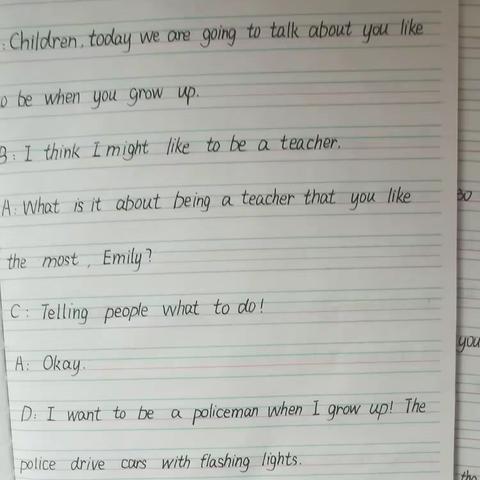 : Children, today we are going to talk about you like
o be when you grow up.
B: I think I might like to be a teacher.
A: What is it about being a teacher that you like
30
the most, Emily?
C: Telling people what to do!
you
A: Okay.
D: I want to be a policeman when I grow up! The
police drive cars with flashing lights.